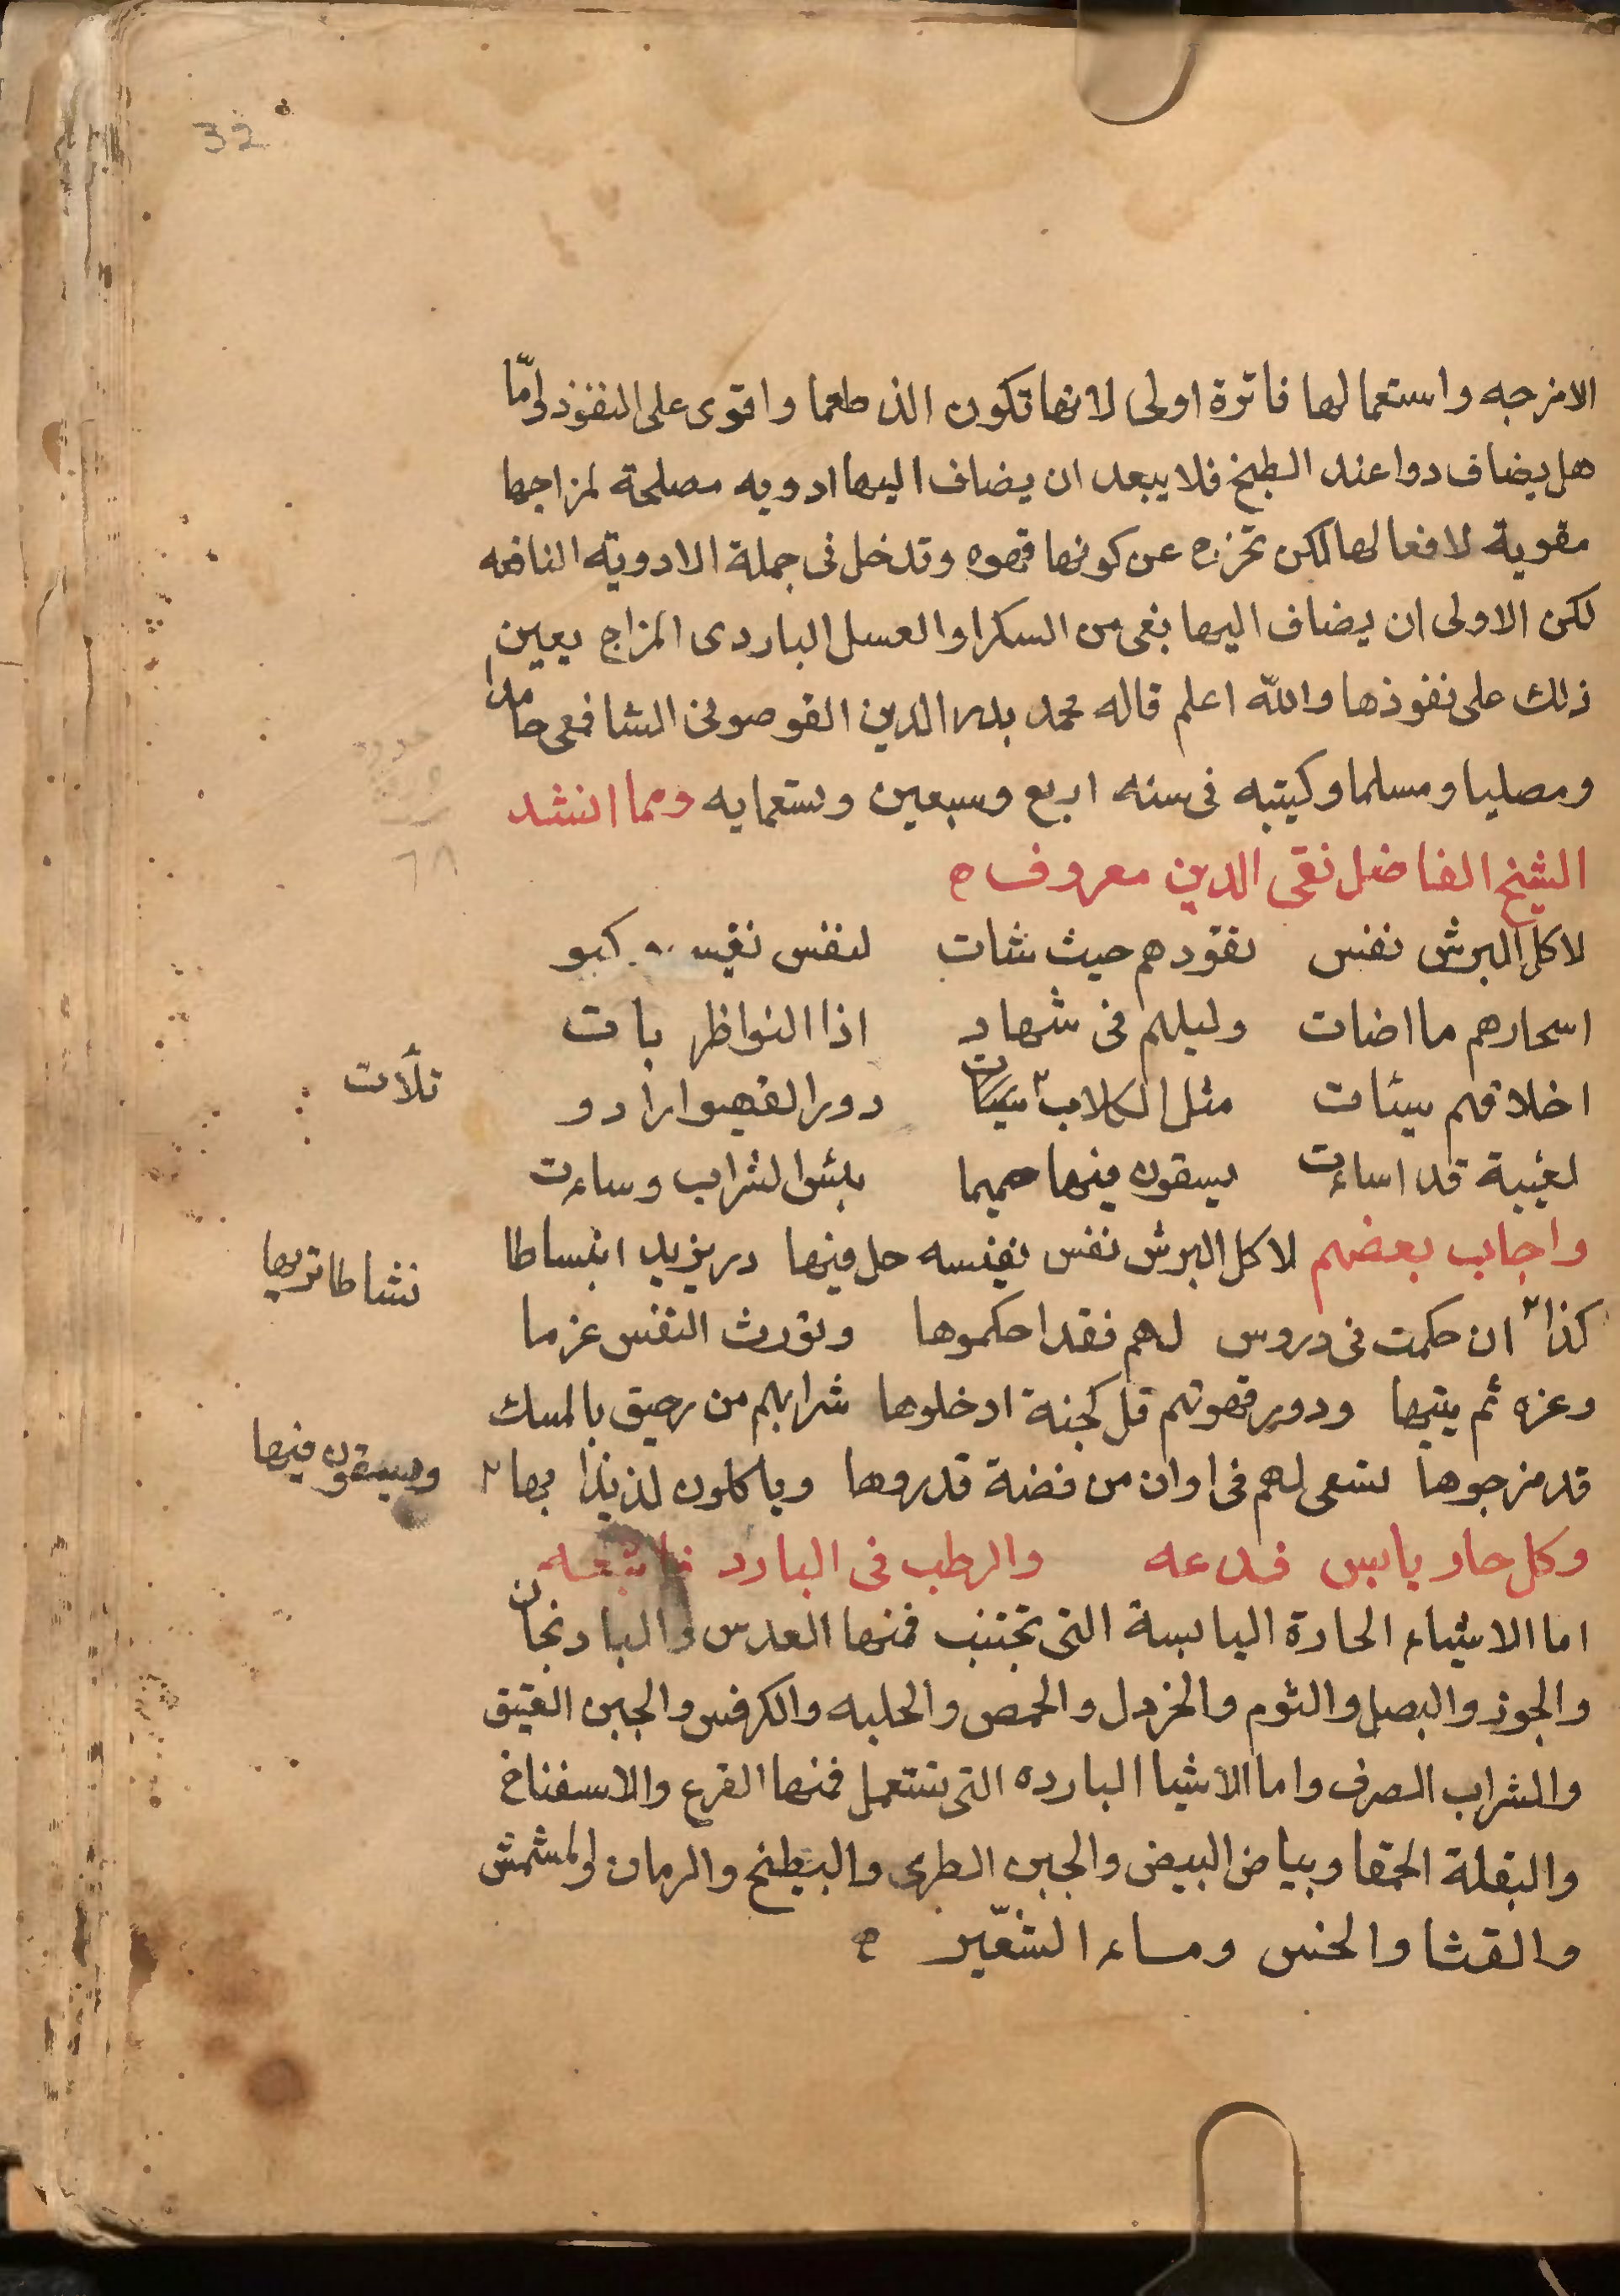 32
الامزجه واستعمالها فاترة اولى لانها تكون الذ طعما واقوى على النفوذ وامّا
هل يضاف دوا عند الطبخ فلا يبعد ان يضاف اليها ادويه مصلحة لمزاجها
مقوية لافعالها لكن تخرج عن كونها قهوه وتدخل فى جملة الادويته النافعه
لكن الاولى ان يضاف اليها شى من السكر او العسل الباردى المزاج يعين
ذلك على نفوذها والله اعلم قاله محمد بدر الدين القوصونى الشافعى حامدا
ومصليا ومسلما وكيتبه فى سنه اربع وسبعين وتستعمايه ومما انشد
الشيخ الفاضل تقى الدين معروف ه
لاكل البرش نفس تقودهم حيث شات لنفس كبو
اسحارهم ما اضات وليلهم فى شهاد اذا النواظر باتت
اخلاقهم سيئات مثل الكلاب دور القهيوا رادو
تلأت
لغيبة قد اساءت يسقون منها حميما بئس الشراب وساءت
واجاب بعضهم لاكل البرش نفس نفيسه حل فيها در يزيد انبساطا
نشاطا تريها
كذا ان حكمت فى دروس لهم فقد احكموها وتورث النفس عزما
وعزه ثم يتيها ودور قهوتهم قل كجنة ادخلوها شرابهم من رحيق بالمسك
قد مزجوها تسعى لهم فى اوان من فضة قدروها وياكلون لذيذا بها
ويسقون فيها
وكل حار يابس فدعه والرطب فى البارد
اما الاشياء الحارة اليابسة التى تجتنب فمنها العدس والبادنجان
والجوز والبصل والثوم والخردل والحمص والحلبه والكرفس والجبن العتيق
والشراب الصرف واما الاشيا البارده التى تستعمل فمنها القرع والاسفناخ
والبقلة الحمقا وبياض البيض والجبن الطرى والبطيخ والرمان والمشمش
والقثا والخس وماء الشعّير ه